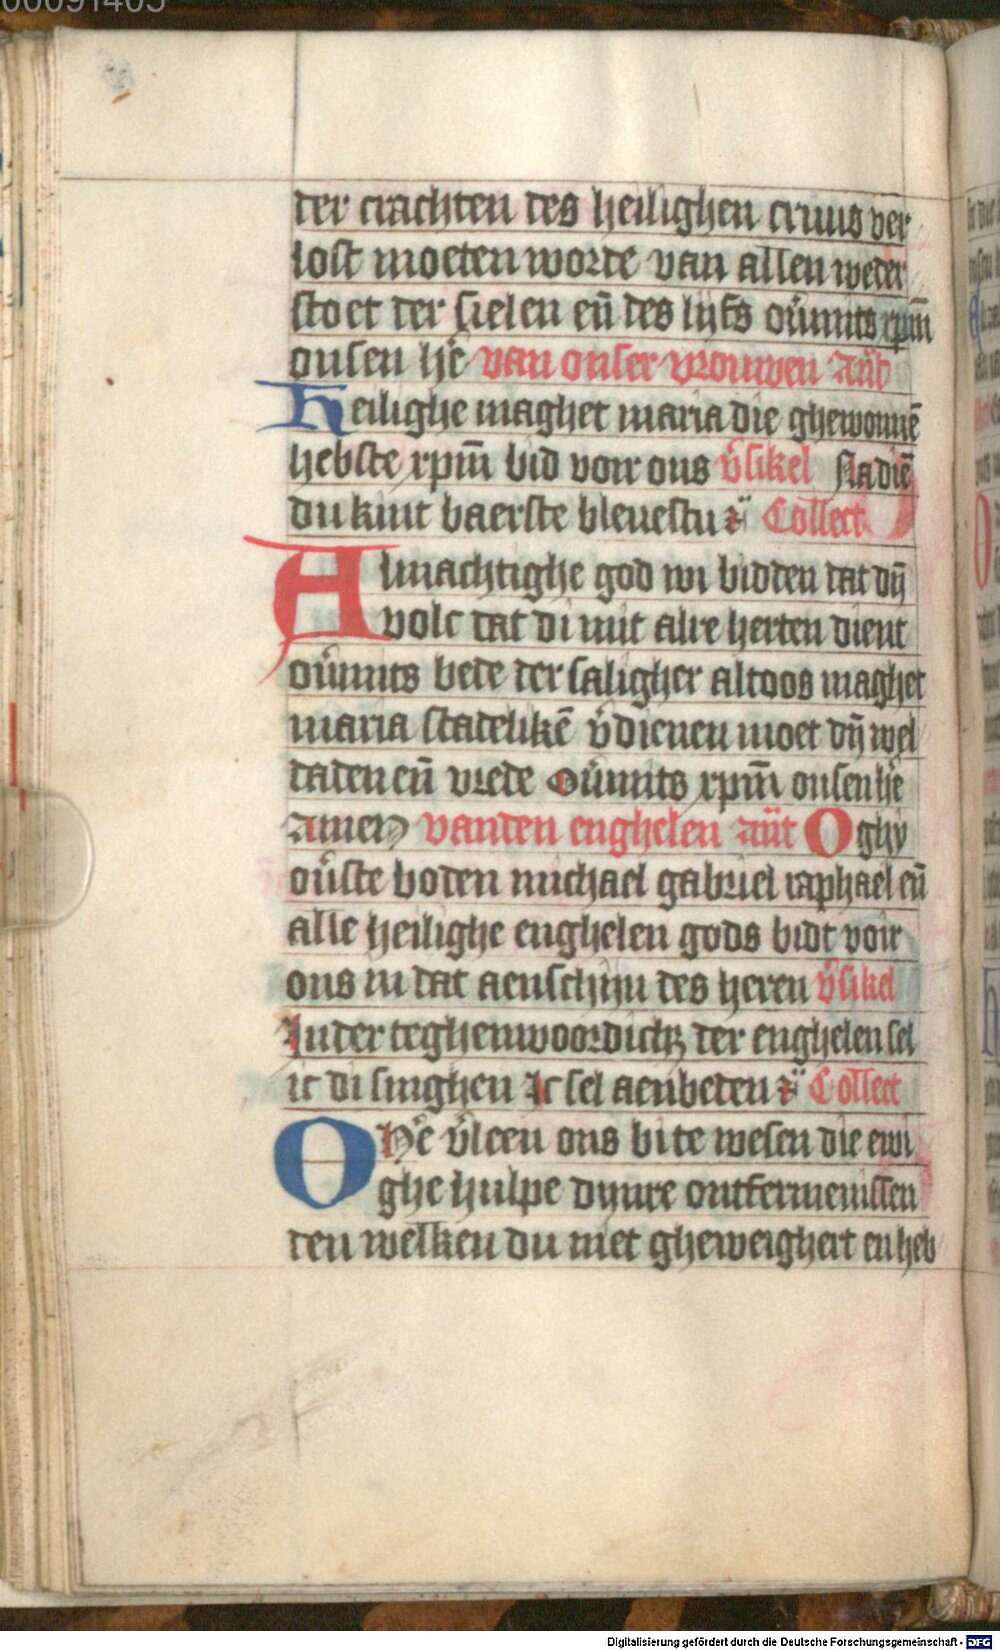 00091405
der crachten des heilighen cruus ver
lost moeten worde van allen weder
stoet der sielen en̄ des lijfs ou͛mits xp̄m
onsen he͛ van onser vrouwen An̄t
Heilighe maghet maria die ghewonnē
hebste xp̄m bid voir ons v͛sikel Nadiē
du kint baerste bleuestu Collect
Almachtighe god wi bidden dat dȳ
volc dat di mit alre herten dient
ou͛mits bede der saligher altoos maghet
maria stadelikē v͛dienen moet dȳ wel
daden en̄ vrede Ou͛mits xp̄m onsen he͛
Amen vanden enghelen an̄t O ghy
ou͛ste boden michael gabriel raphael en̄
alle heilighe enghelen gods bidt voir
ons in dat aenschijn des heren v͛sikel
In der teghenwoordich; der enghelen sel
ic di singhen Ic sel aenbeden Collect
O He͛ v͛leen ons bi te wesen die ewi
ghe hulpe dijnre ontfermenissen
den welken du niet gheweighert en heb
Digitalisierung gefördert durch die Deutsche Forschungsgemeinschaft - DFG